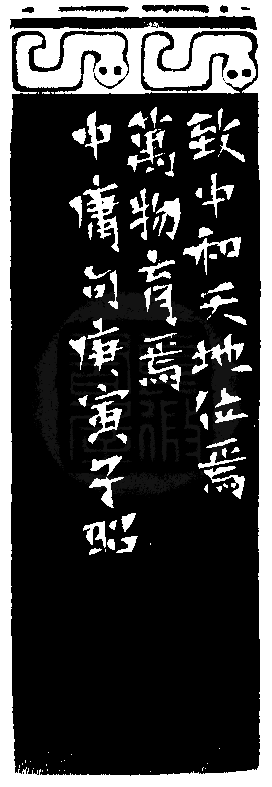 致中和天地位焉
萬物育焉
中庸句庚寅子昭